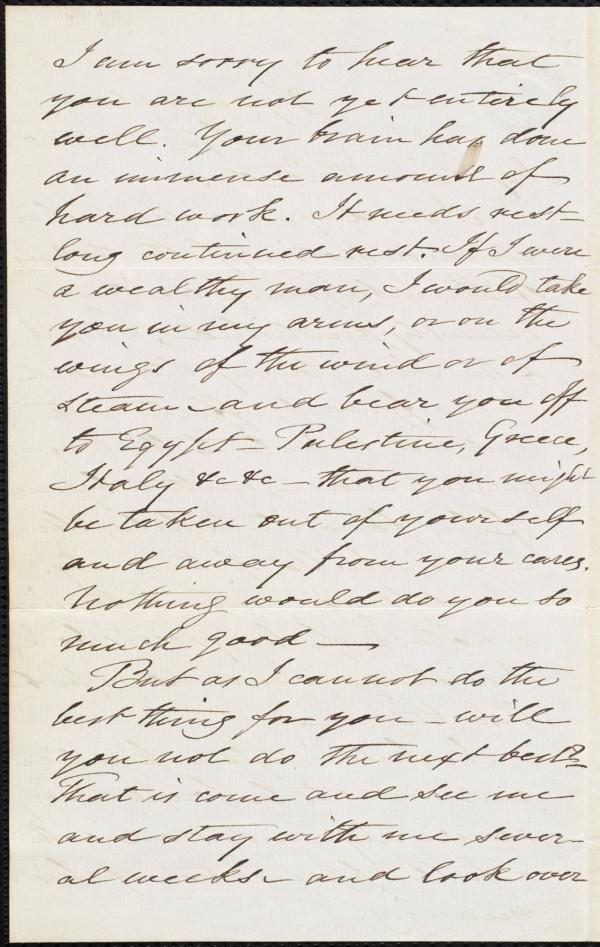 I am sorry to hear that
you are not yet entirely
well. Your brain has done
an immense amount of
hard work. It needs rest
long continued rest. If I were
a wealthy man, I would take
you in my arms, or on the
wings of the wind or of
steam - and bear you off
to Egypt - Palestine, Greece,
Italy &c &c - that you might
be taken out of yourself
and away from your cares.
Nothing would do you so
much good —
But as I cannot do the
best thing for you - will
you not do the next best?
That is come and see me
and stay with me sever-
al weeks - and look over